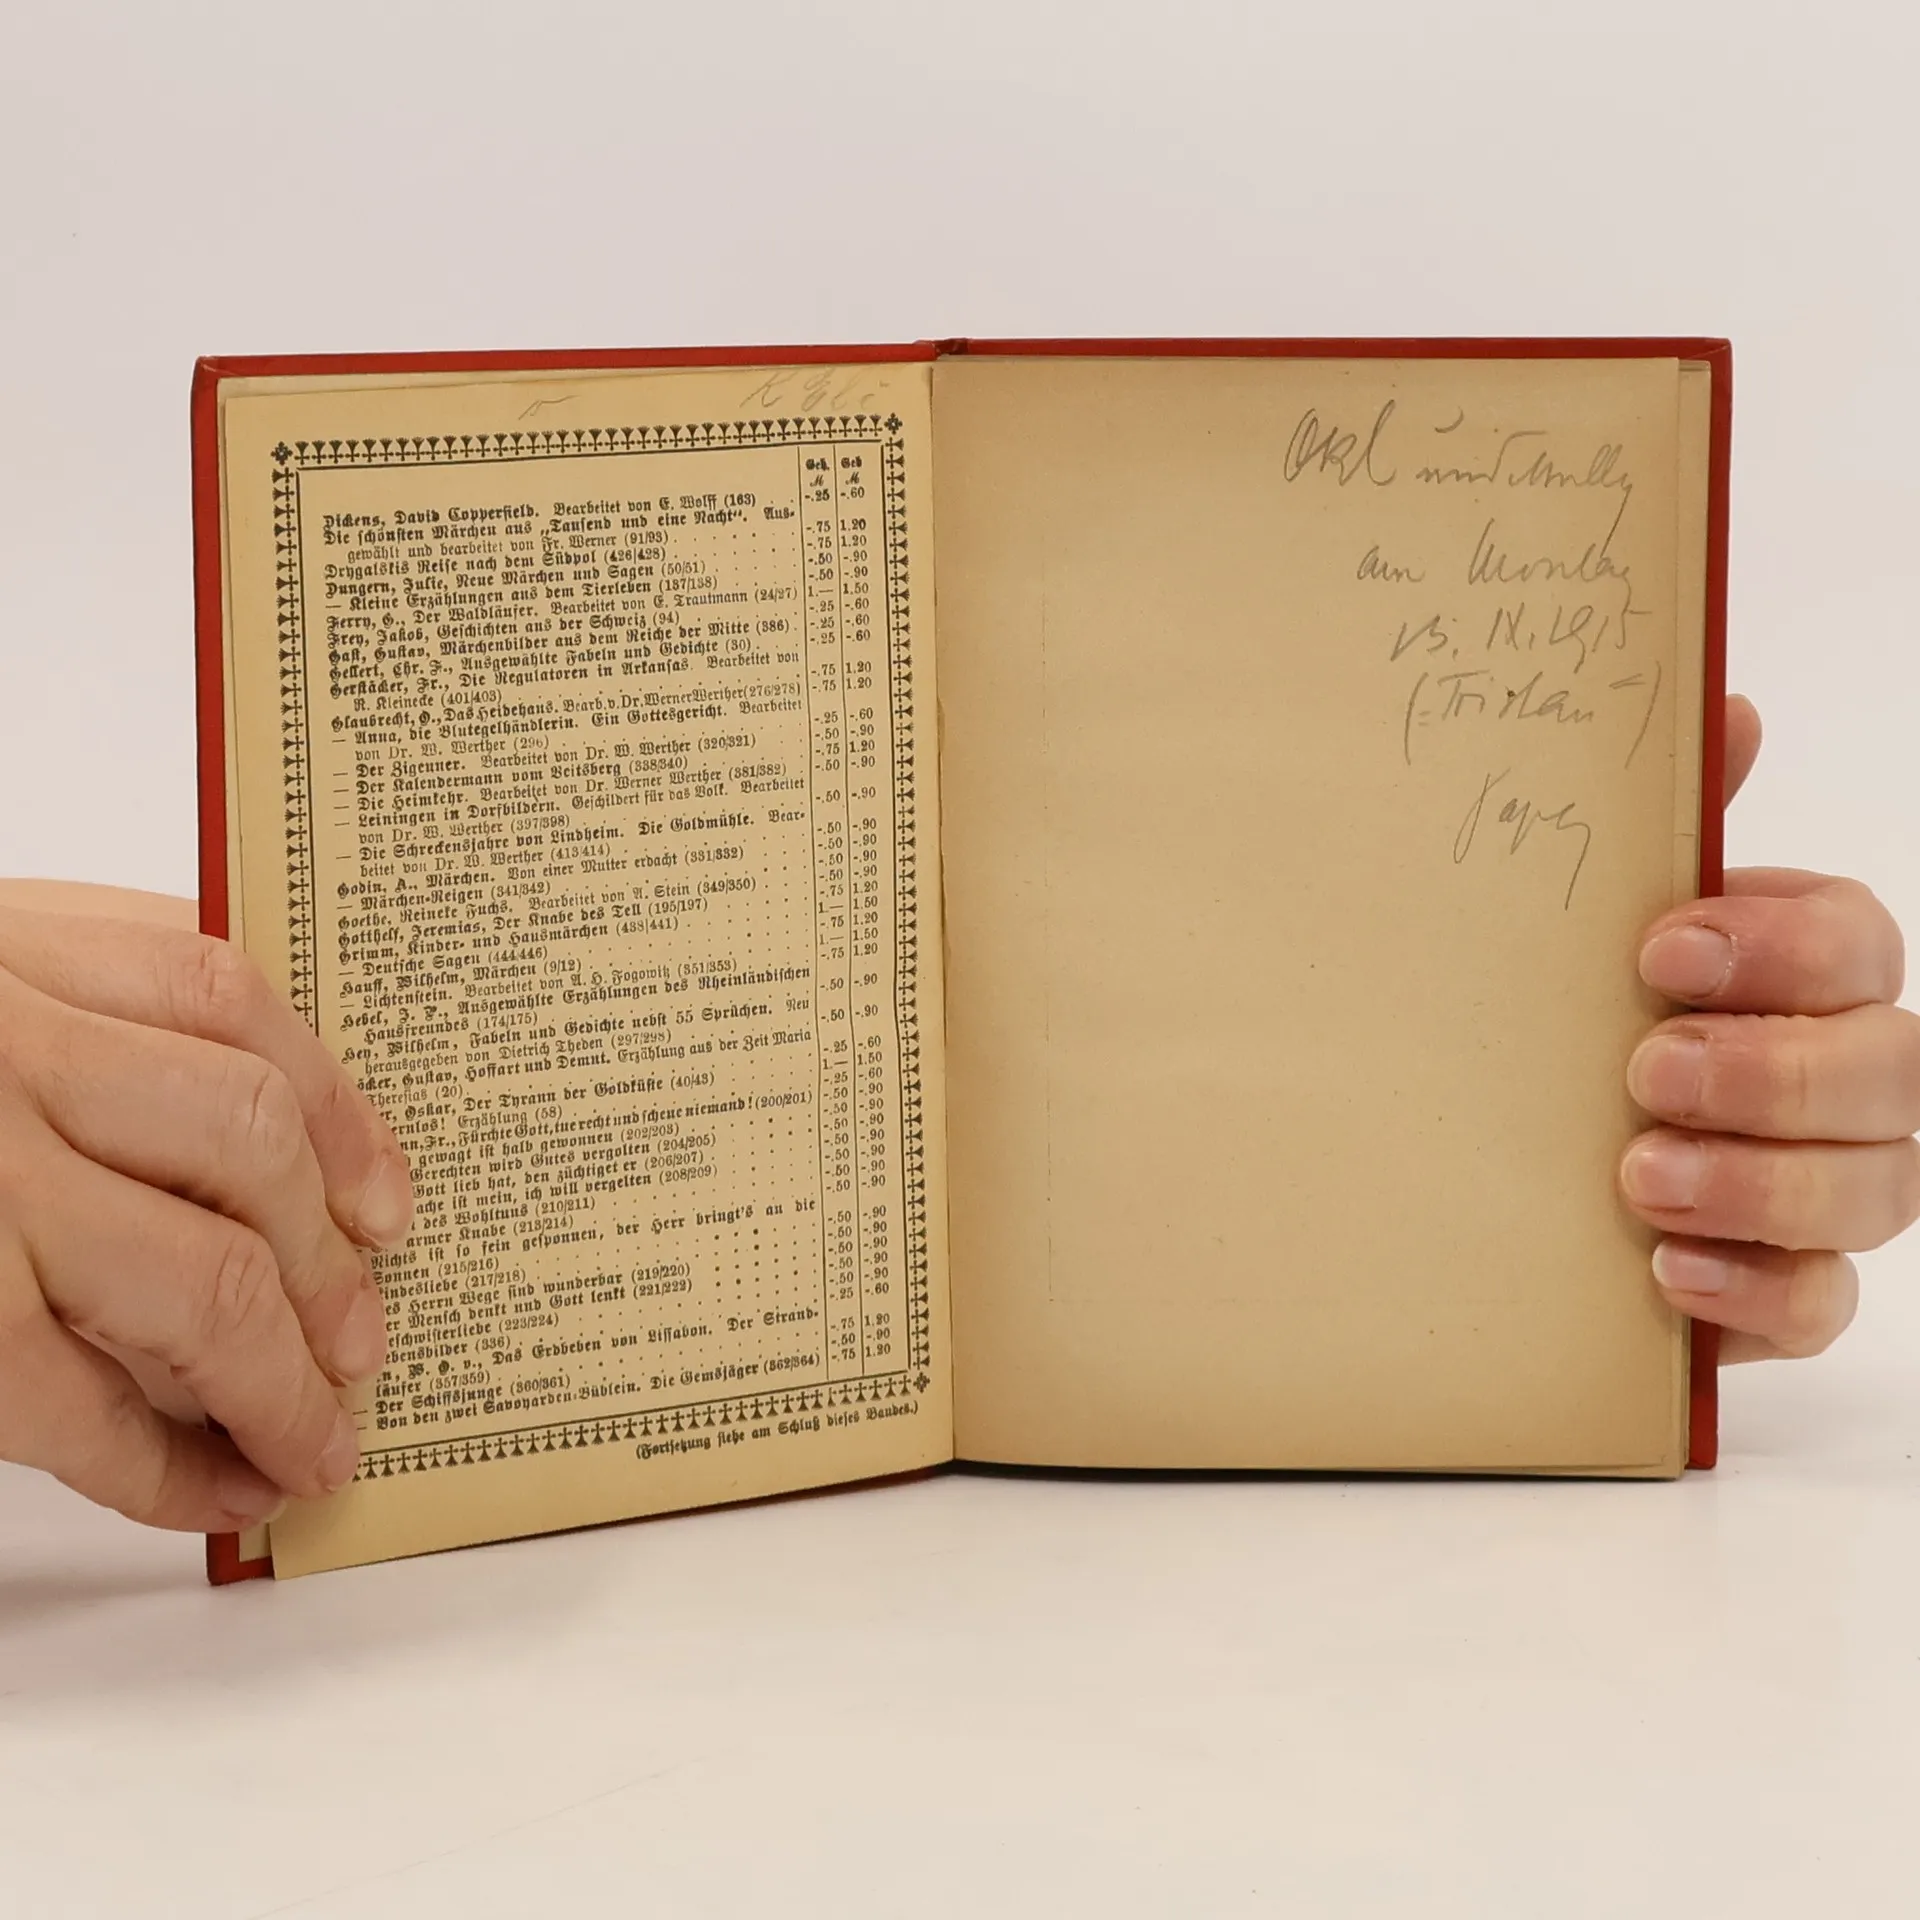 Geh. Geb
M M
Dickens, David Copperfield. Bearbeitet von E. Wolff (163) . . -.25 -.60
Die schönsten Märchen aus „Tausend und eine Nacht“. Aus-
gewählt und bearbeitet von Fr. Werner (91/93) . . . . . . -.75 1.20
Drygalskis Reise nach dem Südpol (426/428) . . . . . . -.75 1.20
Dungern, Julie, Neue Märchen und Sagen (50/51) . . . . . -.50 -.90
— Kleine Erzählungen aus dem Tierleben (137/138) . . . . -.50 -.90
Ferry, G., Der Waldläufer. Bearbeitet von E. Trautmann (24/27) 1.— 1.50
Frey, Jakob, Geschichten aus der Schweiz (94) . . . . . -.25 -.60
Gast, Gustav, Märchenbilder aus dem Reiche der Mitte (386) . -.25 -.60
Gellert, Chr. F., Ausgewählte Fabeln und Gedichte (30) . . . -.25 -.60
Gerstäcker, Fr., Die Regulatoren in Arkansas. Bearbeitet von
R. Kleinecke (401/403) . . . . . . . -.75 1.20
Glaubrecht, O., Das Heidehaus. Bearb. v. Dr. Werner Werther (276/278) -.75 1.20
— Anna, die Blutegelhändlerin. Ein Gottesgericht. Bearbeitet
von Dr. W. Werther (296) . . . . . . -.25 -.60
— Der Zigeuner. Bearbeitet von Dr. W. Werther (320/321) -.50 -.90
— Der Kalendermann vom Veitsberg (338/340) . . . . -.75 1.20
— Die Heimkehr. Bearbeitet von Dr. Werner Werther (381/382) -.50 -.90
— Leiningen in Dorfbildern. Geschildert für das Volk. Bearbeitet
von Dr. W. Werther (397/398) . . . . . -.50 -.90
— Die Schreckensjahre von Lindheim. Die Goldmühle. Bear-
beitet von Dr. W. Werther (413/414) . . . . . -.50 -.90
Godin, A., Märchen. Von einer Mutter erdacht (331/332) -.50 -.90
— Märchen-Reigen (341/342) . . . . . -.50 -.90
Goethe, Reineke Fuchs. Bearbeitet von A. Stein (349/350) . . . -.50 -.90
Gotthelf, Jeremias, Der Knabe des Tell (195/197) . . . . -.75 1.20
Grimm, Kinder- und Hausmärchen (438/441) . . . . . 1.— 1.50
— Deutsche Sagen (444/446) . . . . . -.75 1.20
Hauff, Wilhelm, Märchen (9/12) . . . . . 1.— 1.50
— Lichtenstein. Bearbeitet von A. H. Fogowitz (351/353) -.75 1.20
Hebel, J. P., Ausgewählte Erzählungen des Rheinländischen
Hausfreundes (174/175) . . . . . -.50 -.90
Hey, Wilhelm, Fabeln und Gedichte nebst 55 Sprüchen. Neu
herausgegeben von Dietrich Theden (297/298) . . . . -.50 -.90
öcker, Gustav, Hoffart und Demut. Erzählung aus der Zeit Maria
Theresias (20) . . . . . -.25 -.60
r, Oskar, Der Tyrann der Goldküste (40/43) . . . . 1.— 1.50
ernlos! Erzählung (58) . . . . . -.25 -.60
nn, Fr., Fürchte Gott, tue recht und scheue niemand! (200/201) -.50 -.90
gewagt ist halb gewonnen (202/203) . . . . -.50 -.90
Gerechten wird Gutes vergolten (204/205) . . . . -.50 -.90
Gott lieb hat, den züchtiget er (206/207) . . . . -.50 -.90
ache ist mein, ich will vergelten (208/209) . . . . -.50 -.90
des Wohltuns (210/211) . . . . . -.50 -.90
armer Knabe (213/214) . . . . . -.50 -.90
Nichts ist so fein gesponnen, der Herr bringt's an die
Sonnen (215/216) . . . . . -.50 -.90
indesliebe (217/218) . . . . . -.50 -.90
es Herrn Wege sind wunderbar (219/220) . . . . -.50 -.90
er Mensch denkt und Gott lenkt (221/222) . . . . -.50 -.90
eschwisterliebe (223/224) . . . . . -.50 -.90
ebensbilder (336) . . . . . -.25 -.60
n, W. O. v., Das Erdbeben von Lissabon. Der Strand-
läufer (357/359) . . . . . -.75 1.20
— Der Schiffsjunge (360/361) . . . . . -.50 -.90
— Von den zwei Savoyarden-Büblein. Die Gemsjäger (362/364) -.75 1.20
(Fortsetzung siehe am Schluß dieses Bandes.)
und
am Montag
13. IX. 1915
(=Tristan=)